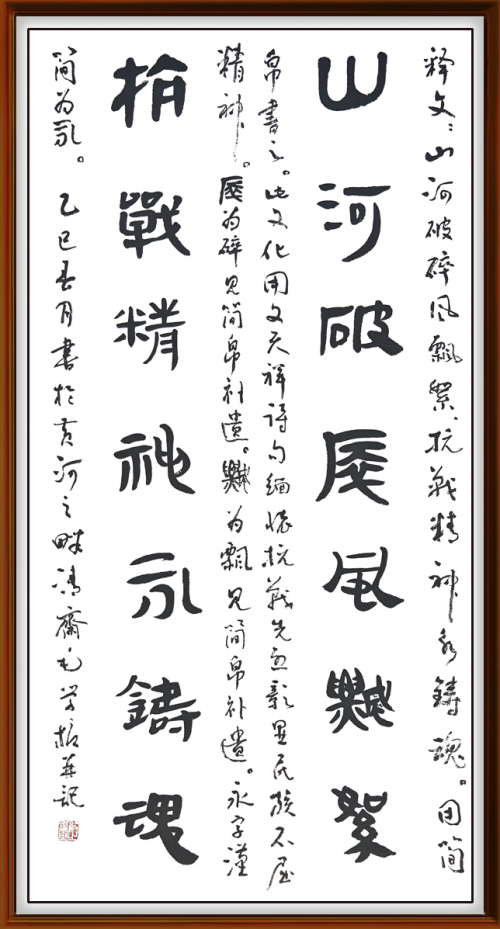 释文：山河破碎风飘絮，抗战精神永铸魂。用简
山河破风飘絮
帛書之。此文化用文天祥诗句缅怀抗战先烈彰显民族不屈
精神。为碎见简帛补遗。为飘见简帛补遗。永字汉
抗戰精神永鑄魂
简为永。乙巳春月書於黄河之畔清斋毛学振并记